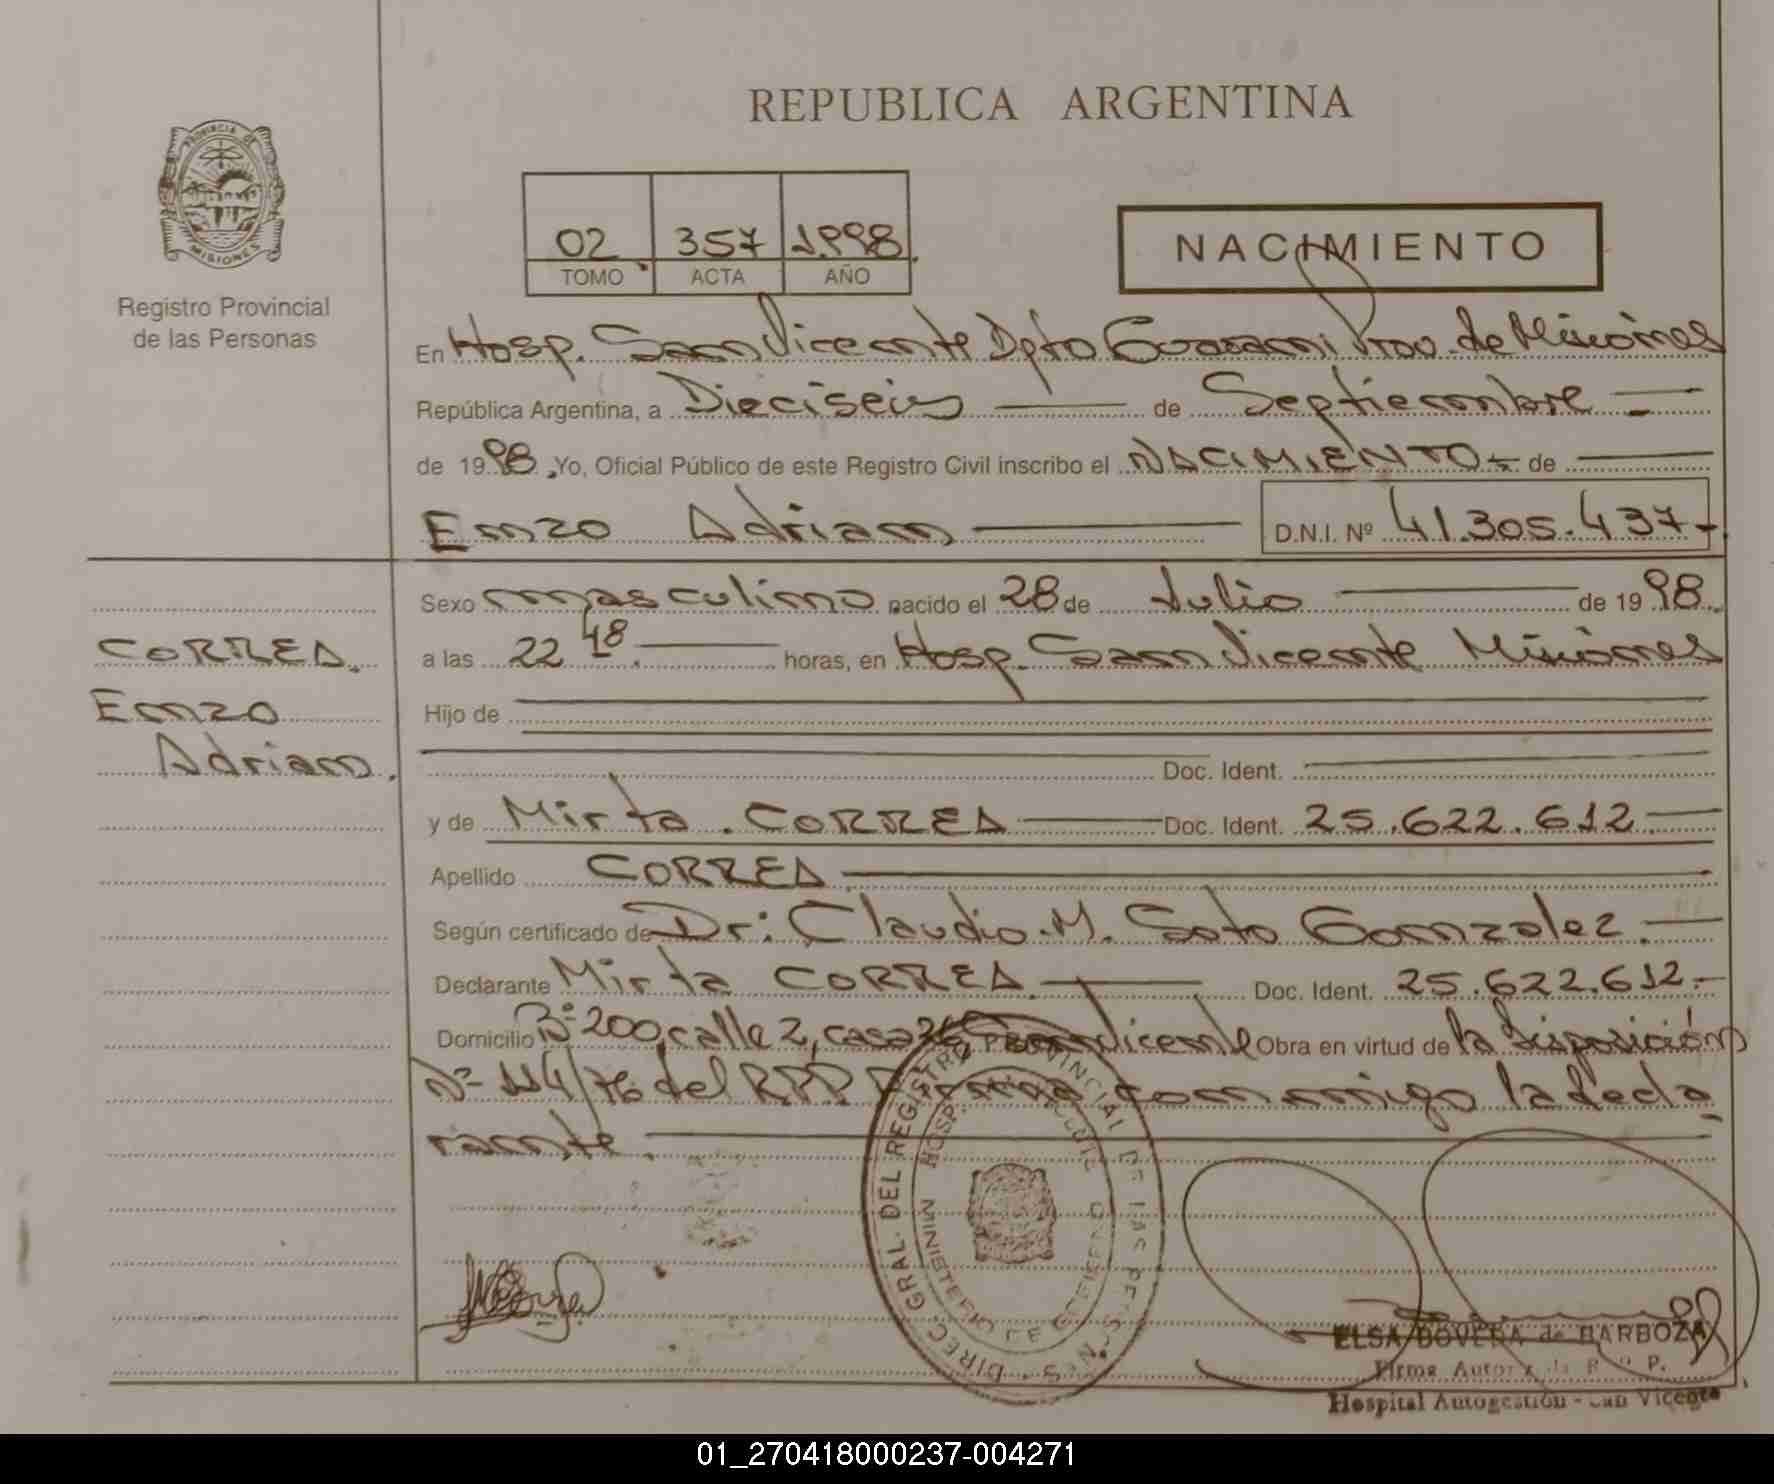 REPUBLICA ARGENTINA
PROVINCIA DE
MISIONES
Registro Provincial
de las Personas
02 357 1998
TOMO ACTA AÑO
NACIMIENTO
En Hosp. San Vicente Dpto Guarani Prov. de Misiones
República Argentina, a Dieciseis de Septiembre
de 1998. Yo, Oficial Público de este Registro Civil inscribo el NACIMIENTO - de
Enzo Adrian D.N.I. Nº 41.305.437-
Sexo masculino nacido el 28 de Julio de 1998.
CORREA.
Enzo
Adrian.
a las 22 48. horas, en Hosp. San Vicente Misiones
Hijo de
Doc. Ident.
y de Mirta. CORREA Doc. Ident. 25.622.612.
Apellido CORREA
Según certificado de Dr: Claudio. M. Soto Gonzalez.
Declarante Mirta CORREA. Doc. Ident. 25.622.612.-
Domicilio Bº 200, calle 2, casa San Vicente Obra en virtud de la Disposición
Nº 114/76 del RPP Firma conmigo la decla
rante.
DIREC. GRAL. DEL REGISTRO PROVINCIAL DE LAS PERSONAS
MINISTERIO DE HOSP.
ELSA BOVERA de BARBOZA
Firma Autor. R. P.
Hospital Autogestión - San Vicente
01_270418000237-004271